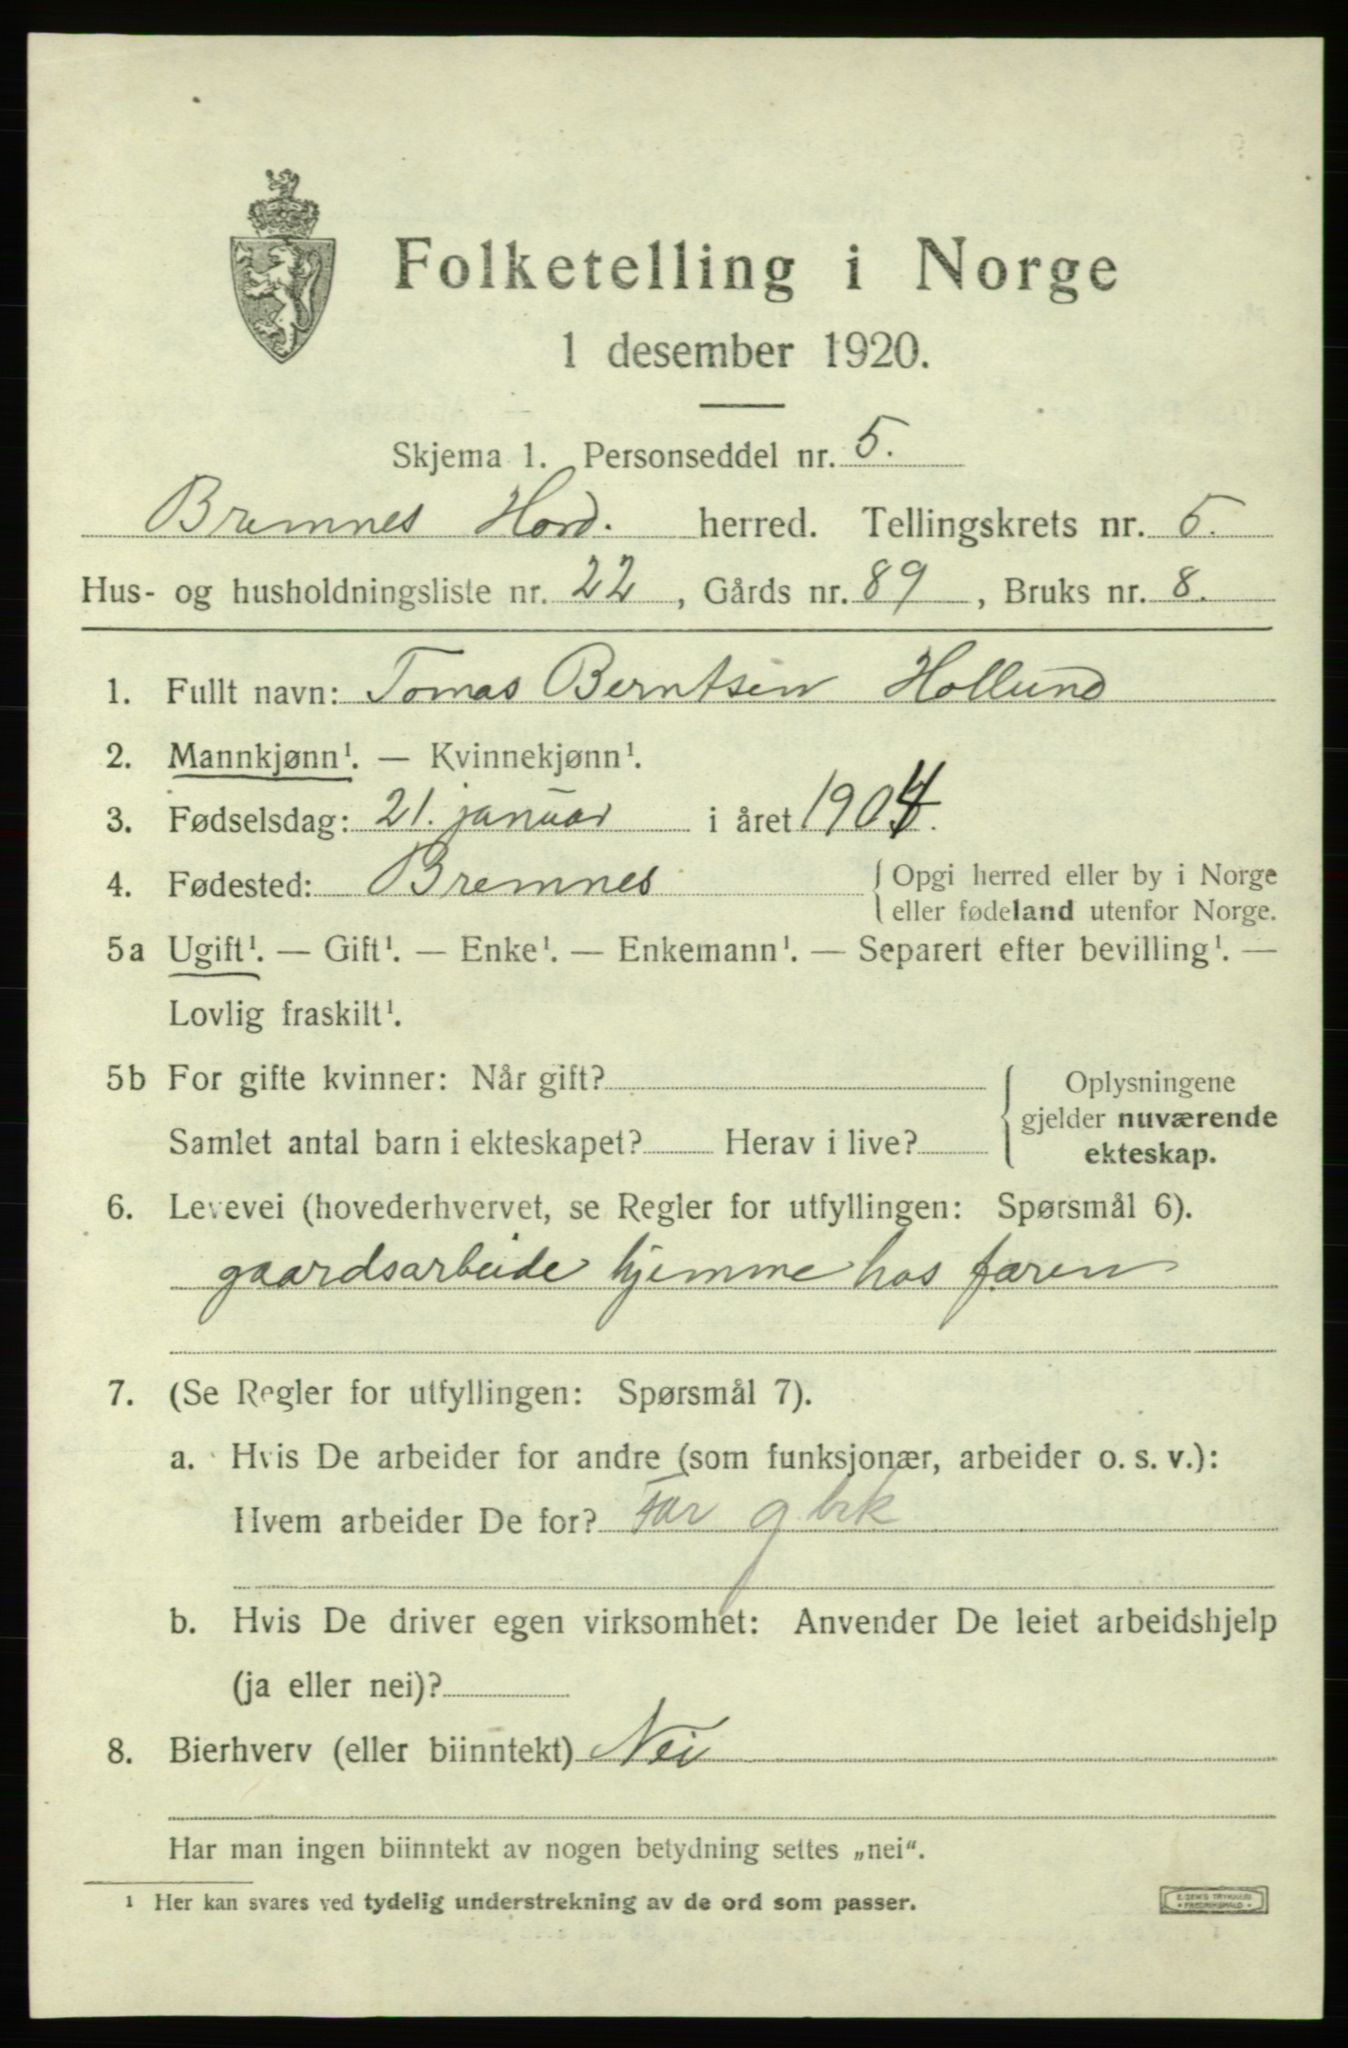 Folketelling i Norge
1 desember 1920.
Skjema 1. Personseddel nr. 5.
Bremnes Hord. herred. Tellingskrets nr. 5.
Hus- og husholdningsliste nr. 22, Gårds nr. 89, Bruks nr. 8.
1. Fullt navn: Tomas Berntsen Hollund
2. Mannkjønn¹. — Kvinnekjønn¹.
3. Fødselsdag: 21. januar i året 1904.
4. Fødested: Bremnes { Opgi herred eller by i Norge
eller fødeland utenfor Norge.
5a Ugift¹. — Gift¹. — Enke¹. — Enkemann¹. — Separert efter bevilling¹. —
Lovlig fraskilt¹.
5b For gifte kvinner: Når gift? { Oplysningene
gjelder nuværende
Samlet antal barn i ekteskapet? Herav i live?
ekteskap.
6. Levevei (hovederhvervet, se Regler for utfyllingen: Spørsmål 6).
gaardsarbeide hjemme hos faren
7. (Se Regler for utfyllingen: Spørsmål 7).
a. Hvis De arbeider for andre (som funksjonær, arbeider o. s. v.):
Hvem arbeider De for? Far gbrk
b. Hvis De driver egen virksomhet: Anvender De leiet arbeidshjelp
(ja eller nei)?
8. Bierhverv (eller biinntekt) Nei
Har man ingen biinntekt av nogen betydning settes „nei“.
¹ Her kan svares ved tydelig understrekning av de ord som passer.